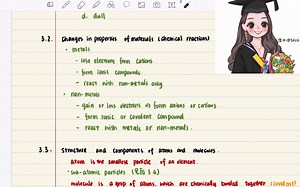 d. dull
3.2. Changes in properties of materials (chemical reactions)
• metals
- lose electrons form cations
- form ionic compounds.
- react with non-metals only
• non-metals
- gain or loss electrons → form anions or cations.
- form ionic or covalent compound
- react with metals or non-metals.
3.3. Structure and components of atoms and molecules.
atom is the smallest particle of an element.
• sub-atomic particles
molecule is a group of atoms, which are chemically bonded together (covalent)